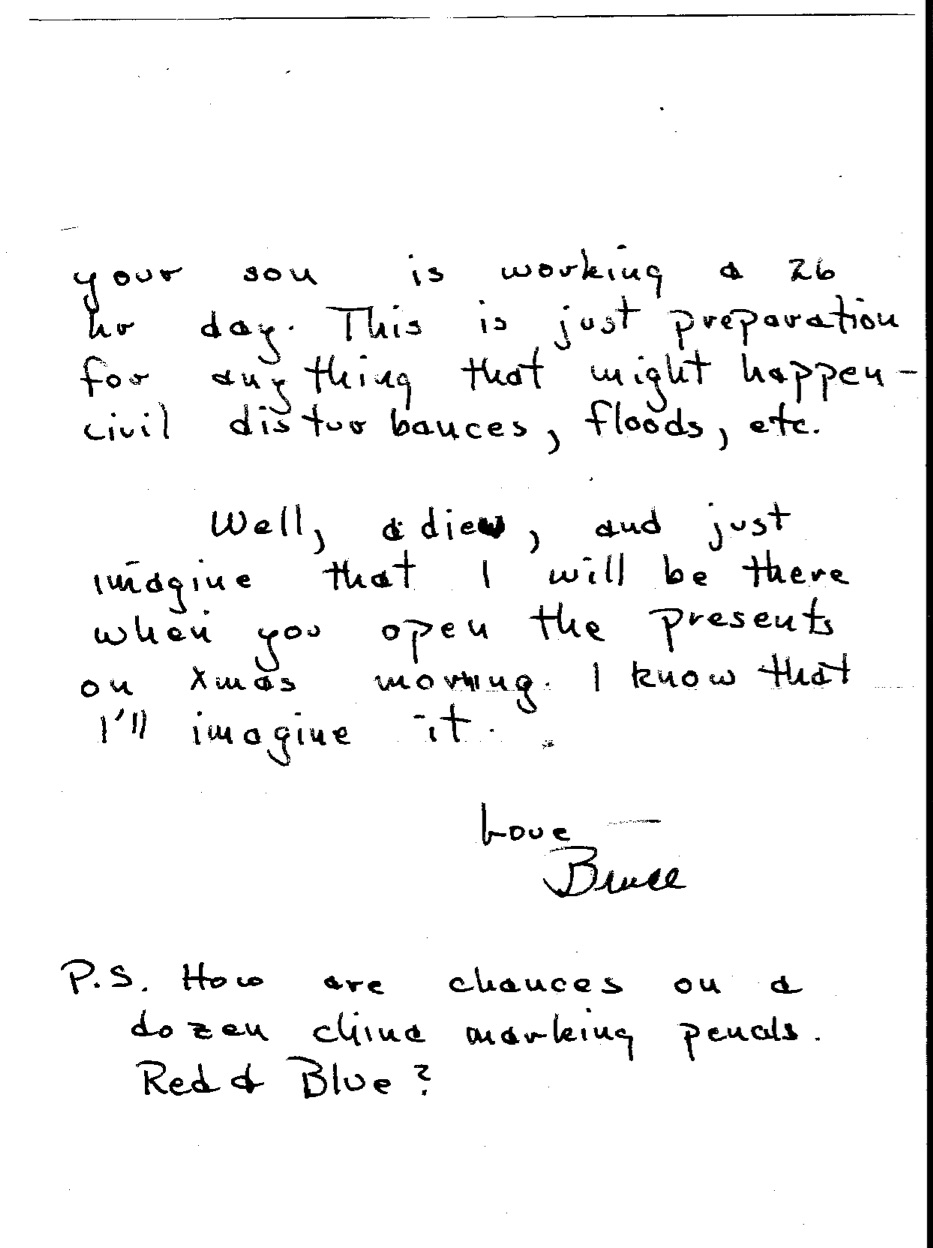 your son is working a 26
hr day. This is just preparation
for anything that might happen -
civil disturbances, floods, etc.
Well, adieu, and just
imagine that I will be there
when you open the presents
on Xmas morning. I know that
I'll imagine it.
Love
Bruce
P.S. How are chances on a
dozen china marking pencils.
Red & Blue?